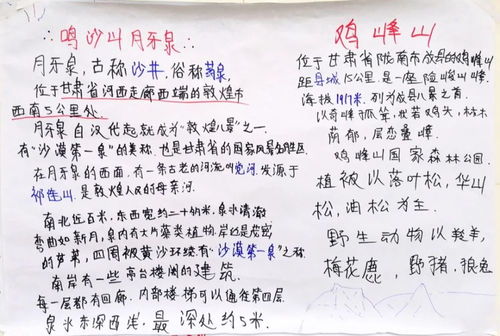 鸣沙山月牙泉
月牙泉,古称沙井,俗称药泉,
位于甘肃省河西走廊西端的敦煌市
西南5公里处.
月牙泉自汉代起就成为"敦煌八景"之一.
有"沙漠第一泉"的美称,也是甘肃省的国家风景名胜区.
在月牙泉的西面,有一条古老的河流叫党河.发源于
祁连山.是敦煌人民的母亲河.
南北近百米,东西宽约二十余米,泉水清澈
弯曲如新月,泉内有大片藻类植物,岸边是茂密
的芦苇,四周被黄沙环绕.有"沙漠第一泉"之称
南岸有一些亭台楼阁的建筑.
每一层都有回廊.内部楼梯可以通往第四层.
泉水东深西浅,最深处约5米.
鸡峰山
位于甘肃省陇南市成县的鸡峰山
距县城15公里.是一座险峻山峰.
海拔1917米.列为成县八景之首.
以奇峰孤耸,状若鸡头,林木
荫郁,层峦叠嶂.
鸡峰山国家森林公园.
植被以落叶松,华山
松,油松为主.
野生动物以羚羊,
梅花鹿,野猪,狼兔